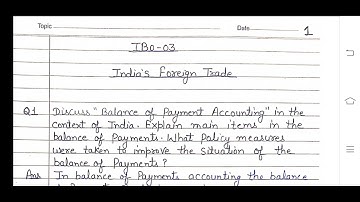 Topic
Date
1
IBO-03
India's Foreign Trade
Q1 Discuss "Balance of Payment Accounting" in the
context of India. Explain main items in the
balance of Payments. What Policy measures
were taken to improve the Situation of the
balance of Payments?
Ans In balance of Payments accounting the balance